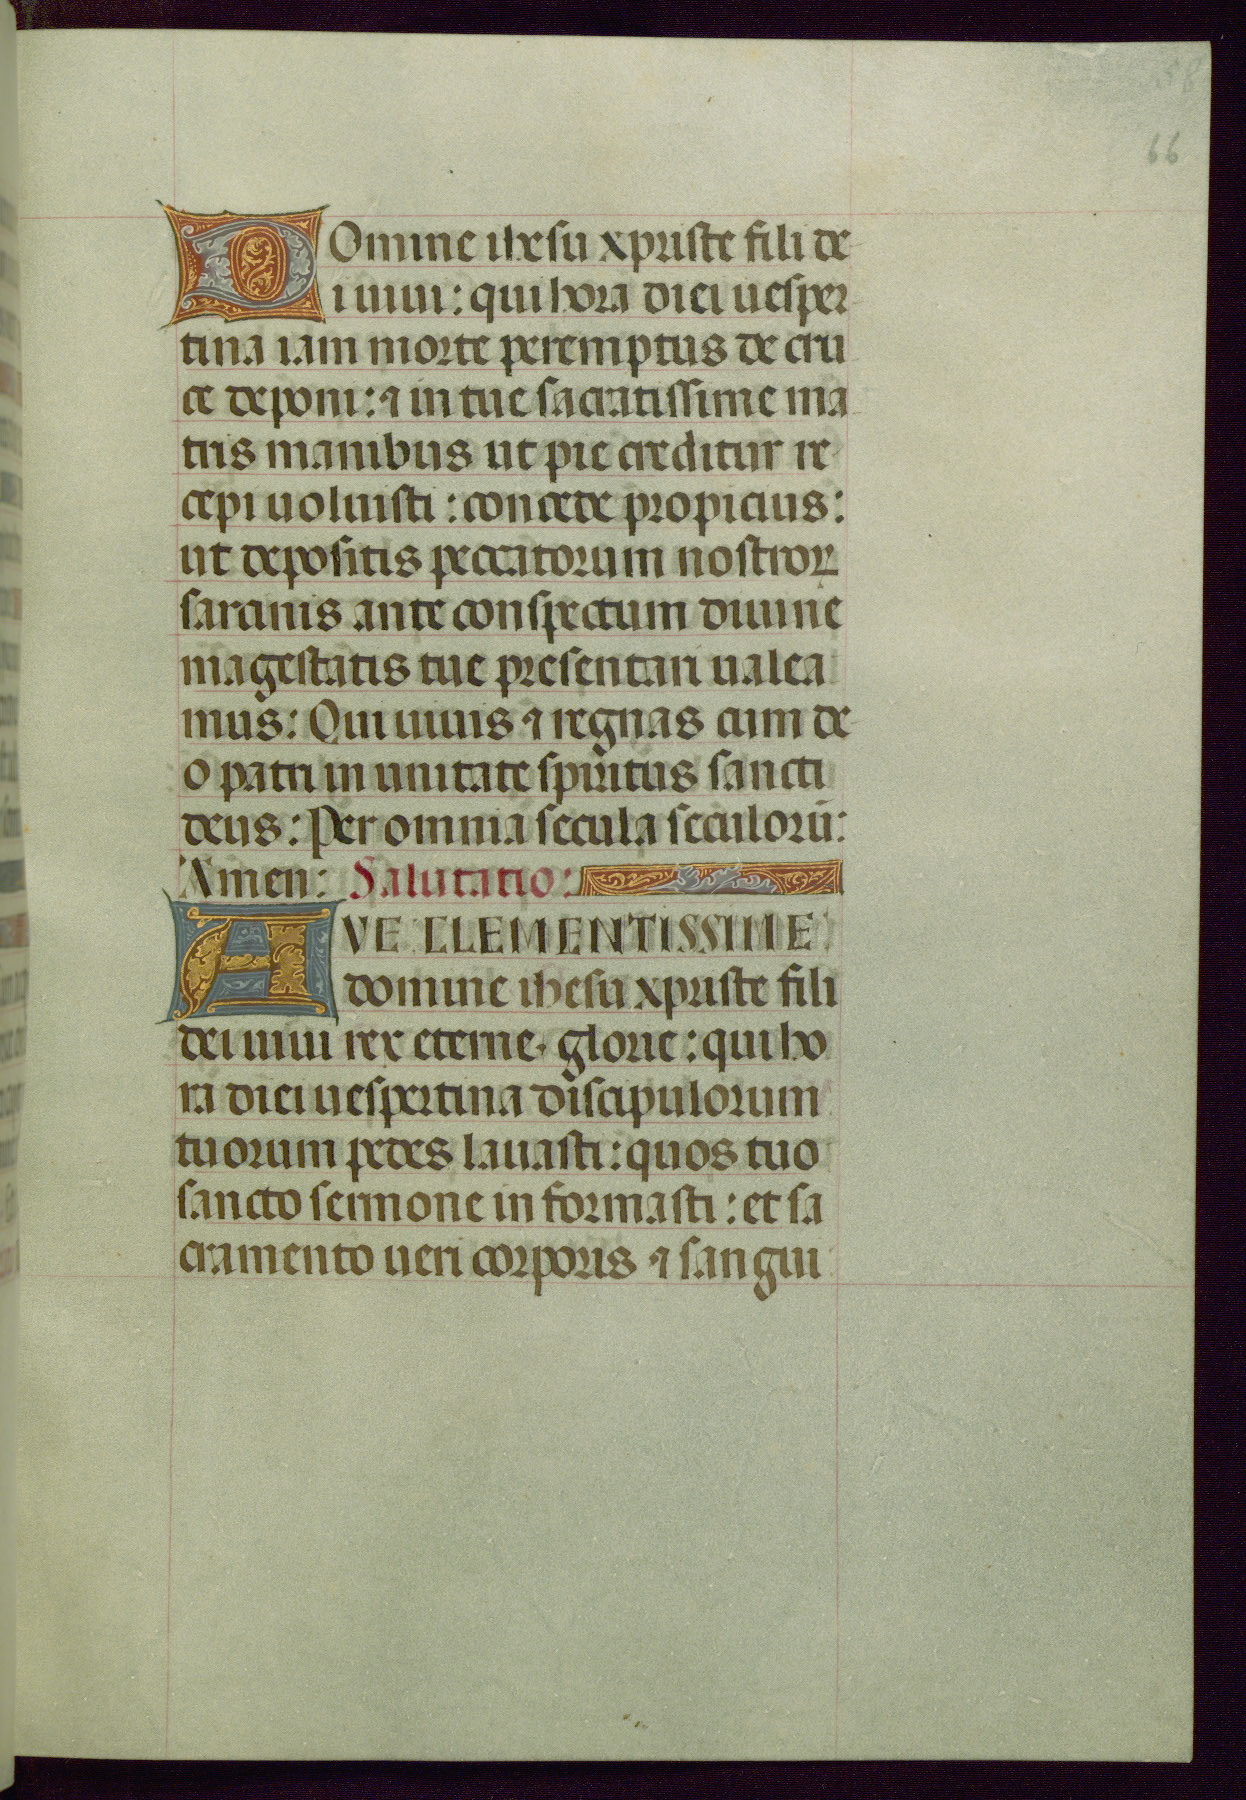 58
66
DOmine ihesu xpriste fili de
i uiui: qui hora diei uesper
tina iam morte peremptus de cru
ce deponi: ⁊ in tue sacratissime ma
tris manibus ut pie creditur re
cepi uoluisti: concede propicius:
ut depositis peccatorum nostroꝝ
sarcinis ante conspectum diuine
magestatis tue presentari ualea
mus: Qui uiuis ⁊ regnas cum de
o patri in unitate spiritus sancti
deus: Per omnia secula seculorū:
Amen: Salutatio:
AVE CLEMENTISSIME
domine ihesu xpriste fili
dei uiui rex eterne glorie: qui ho
ra diei uespertina discipulorum
tuorum pedes lauasti: quos tuo
sancto sermone informasti: et sa
cramento ueri corporis ⁊ sangui